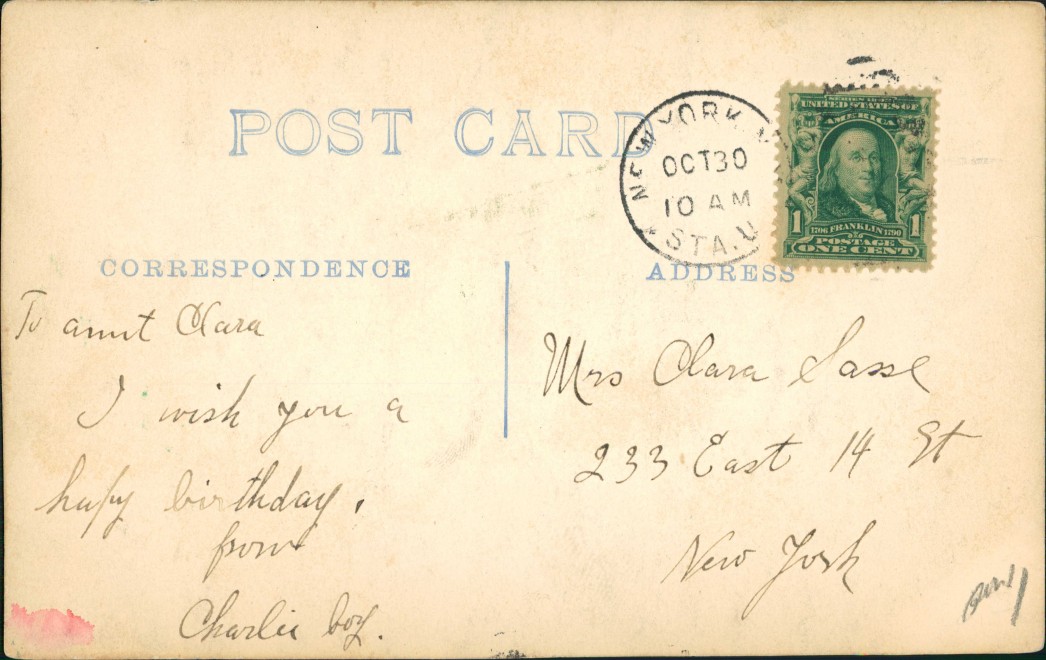 POST CARD
NEW YORK, N.
OCT 30
10 AM
STA. U
UNITED STATES OF
AMERICA
1 1
1706 FRANKLIN 1790
POSTAGE
ONE CENT
CORRESPONDENCE
ADDRESS
To aunt Clara
I wish you a
hapy birthday.
from
Charlie boy.
Mrs Clara Sasse
233 East 14 St
New York